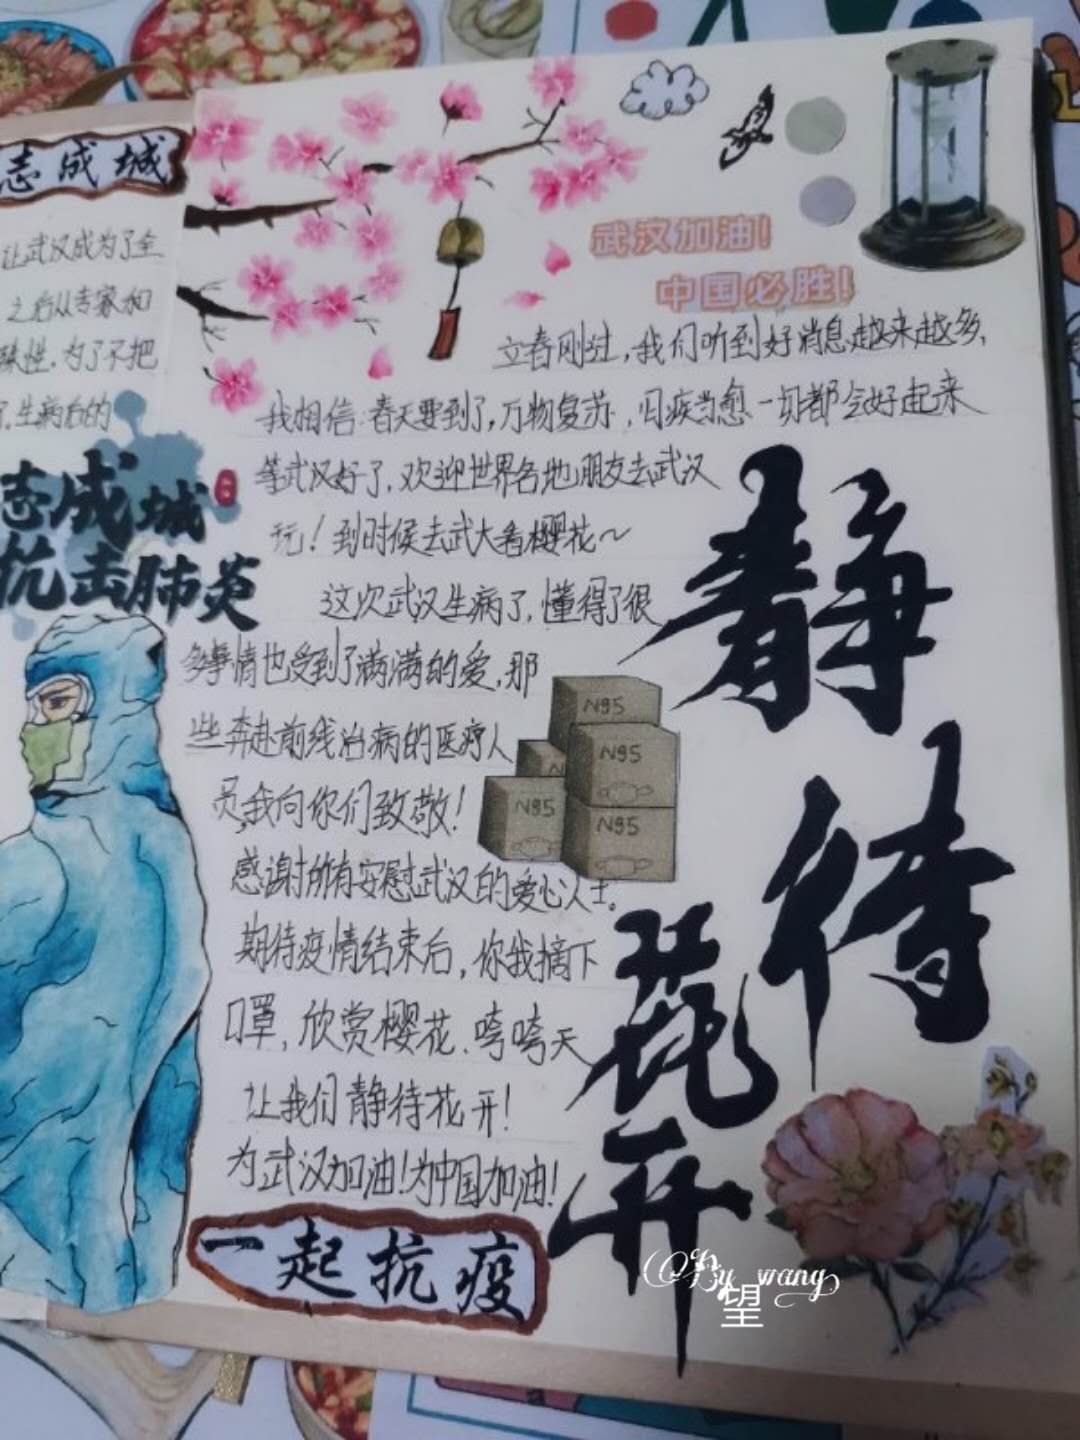 志成城
让武汉成为了全
之后从专家和
殊性.为了不把
生病后的
志成城
抗击肺炎
武汉加油!
中国必胜!
立春刚过,我们听到好消息越来越多,
我相信.春天要到了,万物复苏,旧疾当愈一切都会好起来
等武汉好了,欢迎世界各地朋友去武汉
玩!到时候去武大看樱花~
这次武汉生病了,懂得了很
多事情也受到了满满的爱,那
些奔赴前线治病的医疗人
员,我向你们致敬!
感谢所有安慰武汉的爱心人士。
期待疫情结束后,你我摘下
口罩,欣赏樱花.夸夸天
让我们静待花开!
为武汉加油!为中国加油!
一起抗疫
N95
N95
N95
N95
静待花开
By wang
望